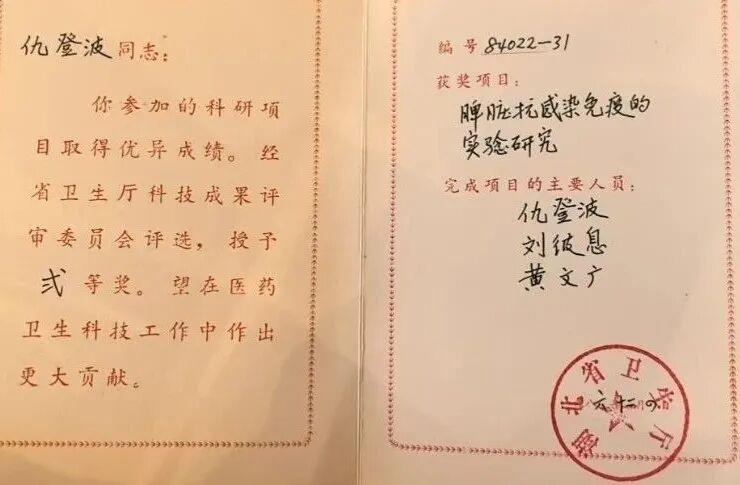 仇登波同志：
你参加的科研项
目取得优异成绩。经
省卫生厅科技成果评
审委员会评选，授予
弍等奖。望在医药
卫生科技工作中作出
更大贡献。
编号84022-31
获奖项目：
脾脏抗感染免疫的
实验研究
完成项目的主要人员：
仇登波
刘绥息
黄文广
湖北省卫生厅